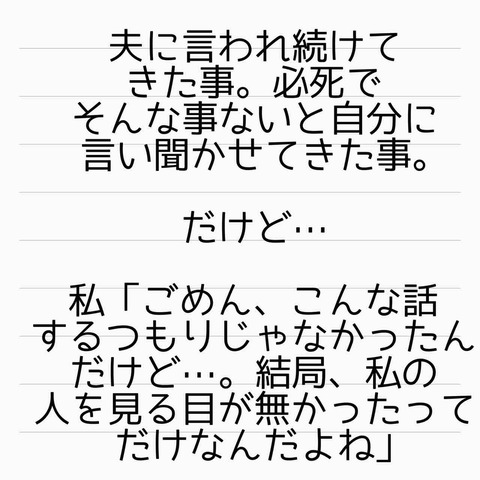 夫に言われ続けて
きた事。必死で
そんな事ないと自分に
言い聞かせてきた事。
だけど…
私「ごめん、こんな話
するつもりじゃなかったん
だけど…。結局、私の
人を見る目が無かったって
だけなんだよね」